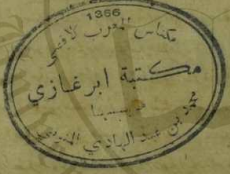 1366
مكناس المغرب الأقصى
مكتبة ابن غازي
محمد بن عبد الهادي المنوني